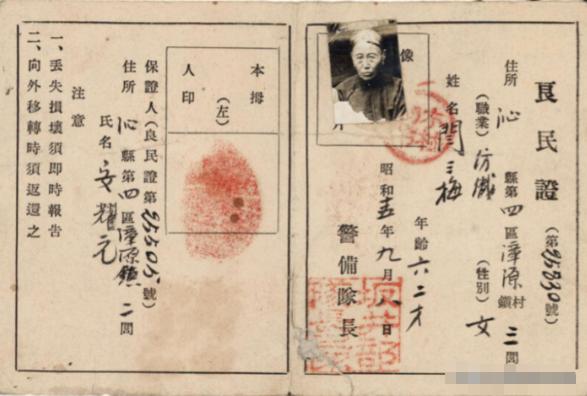 良民證
(第25230號)
住所 沁縣第四區漳源村鎮三閭
(職業)紡織 (性別)女
姓名 閆三梅
年齡六二才
像片
昭和五年九月八日
警備隊長
本人
拇印
(左)
保證人(良民證第25505號)
住所 沁縣第四區漳源鎮二閭
氏名 安耀元
注意
一、丟失損壞須即時報告
二、向外移轉時須返還之